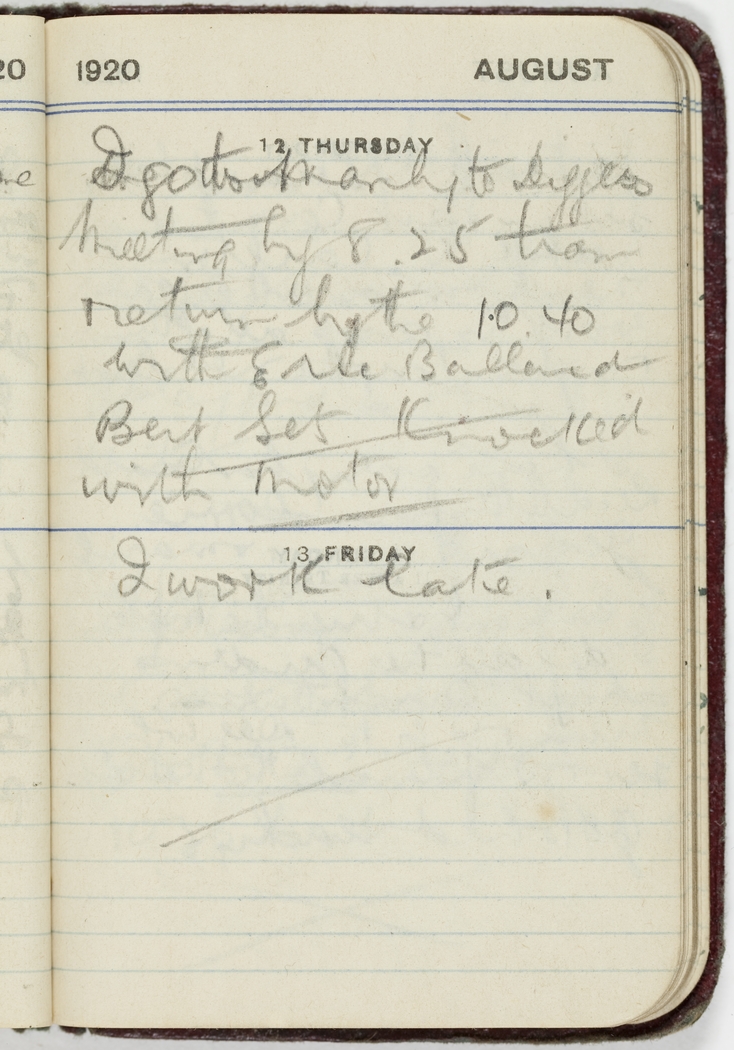 20 1920 AUGUST
12 THURSDAY
I go to Manly to Diggers
Meeting by 8.25 tram
return by the 10.40
with Eric Ballard
Bert Gets Knocked
with Motor
13 FRIDAY
I work late.